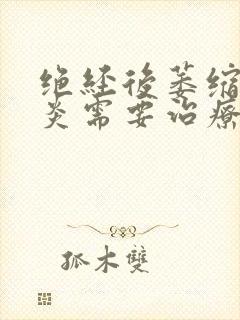 绝经后萎缩
炎需要治療
孤木雙